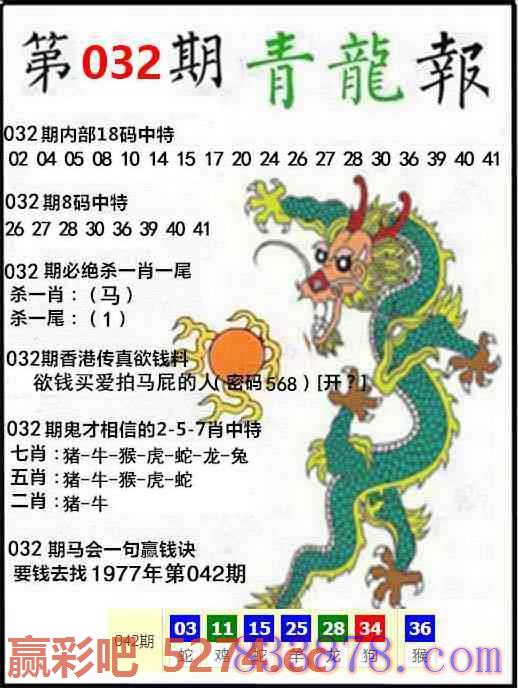 第032期 青龍報
032期内部18码中特
02 04 05 08 10 14 15 17 20 24 26 27 28 30 36 39 40 41
032期8码中特
26 27 28 30 36 39 40 41
032 期必绝杀一肖一尾
杀一肖：（马）
杀一尾：（1）
032期香港传真欲钱料
欲钱买爱拍马屁的人(密码568）[开？]
032期鬼才相信的2-5-7肖中特
七肖：猪-牛-猴-虎-蛇-龙-兔
五肖：猪-牛-猴-虎-蛇
二肖：猪-牛
032 期马会一句赢钱诀
要钱去找1977年第042期
042期 03 11 15 25 28 34 36
蛇 鸡 龙 狗 猴
赢彩吧 5274.cc